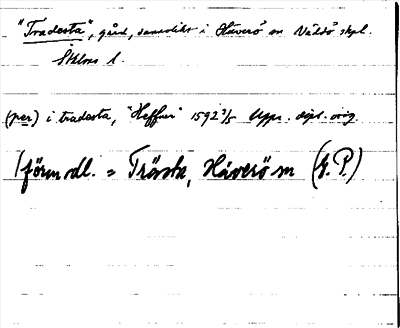 "Tradesta", gård, sannolikt i Häverö sn Väddö skpl.
Sthlms l.
(per) i tradesta, "Heffuer" 1592 3/5 Upps. dipl. orig.
(förmodl. = Trästa, Häverö sn (G.P.)